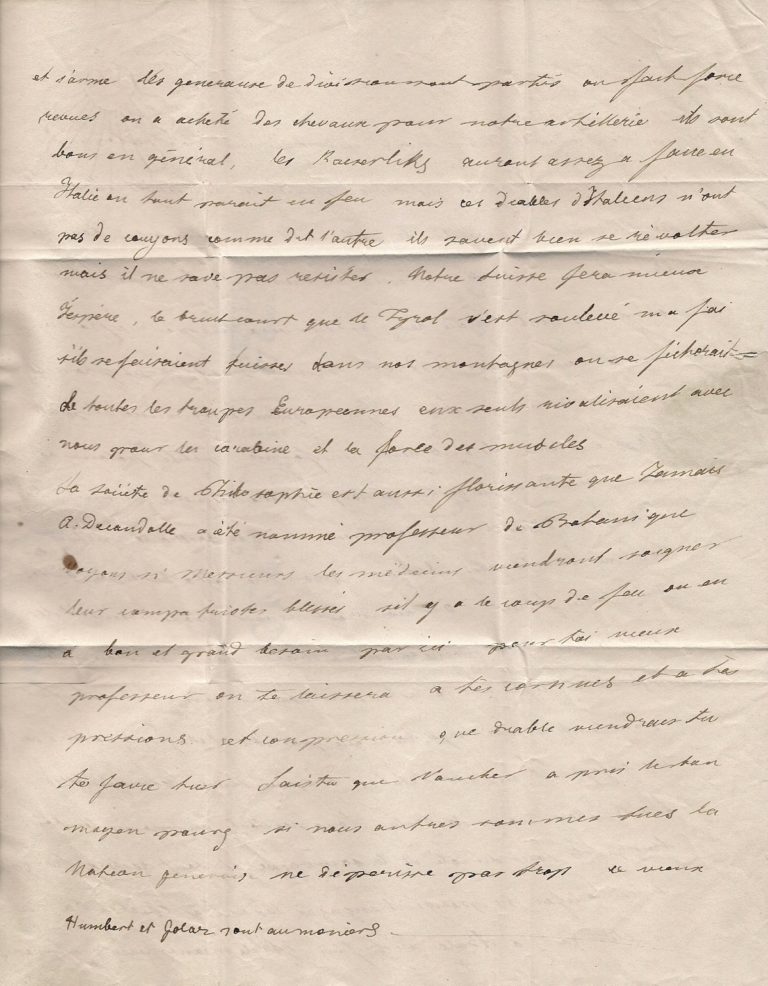 et s'arme des generause de division sont partis on fait force
revues on a acheté des chevaux pour notre artillerie ils sont
bons en général, les Kaeserliks auront assez a faire en
Italie ou tout parait en feu mais ces diables d'Italiens n'ont
pas de couyons comme dit l'autre ils savent bien se révolter
mais il ne save pas resister. Notre Suisse fera mieux
J'espère, le bruit court que le Tyrol s'est soulevé ma foi
s'ils se faisaient suisses dans nos montagnes on se ficherait
de toutes les troupes Européennes eux seuls rivaliseraient avec
nous pour la carabine et la force des muscles
La société de Philosophie est aussi florissante que Jamais
A. Decandolle a été nommé professeur de Botanique
voyons si Messieurs les médecins viendront soigner
leur compatriotes blessés s'il y a le coup de feu on en
a bon et grand besoin par ici pour toi vieux
professeur on te laissera a tes cornues et a tes
pressions et compression que diable viendrais tu
te faire tuer Saistu que Vaucher a pris le bon
moyen pourq si nous autres sommes tués la
Nation genevoise ne déperisse pas trop ce vieux
Humbert et sont aumoniers